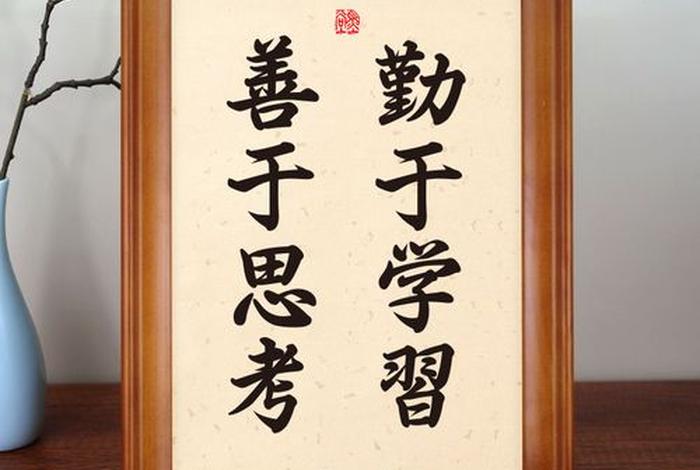 勤于学習
善于思考